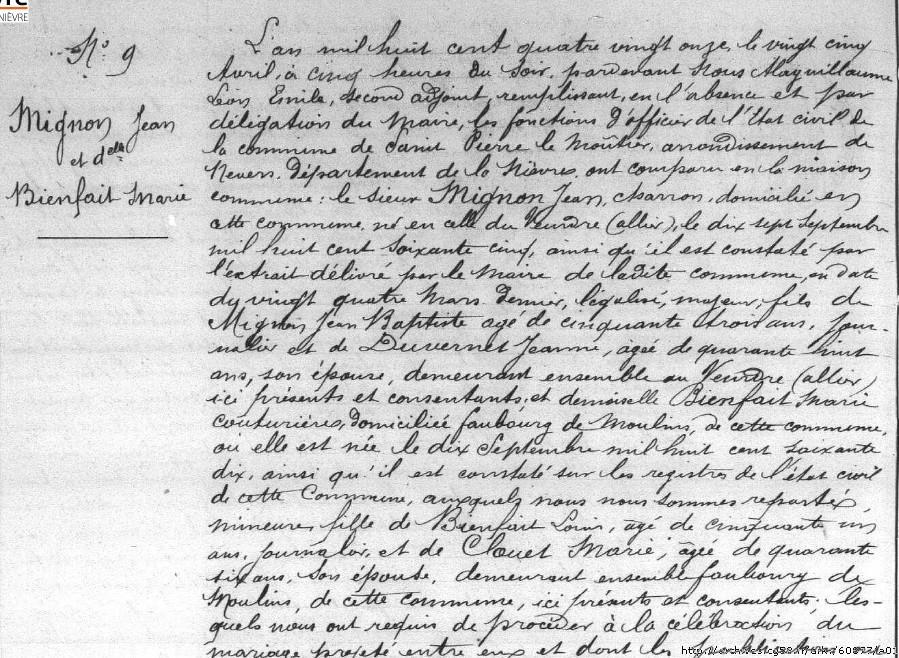 NIÈVRE
N° 9
Mignon Jean
et d^elle
Bienfait Marie
L'an mil huit cent quatre vingt onze, le vingt cinq
Avril, à cinq heures du soir, pardevant Nous Maquillaume
Léon Emile, second adjoint, remplissant, en l'absence et par
déligation du Maire, les fonctions d'officier de l'Etat civil de
la commune de Saint Pierre le Moûtier, arrondissement de
Nevers, Département de la Nièvre, ont comparu en la maison
commune : le sieur Mignon Jean, charron, domicilié en
cette commune, né en celle du Veurdre (allier), le dix sept Septembre
mil huit cent soixante cinq, ainsi qu'il est constaté par
l'extrait délivré par le Maire de ladite commune, en date
du vingt quatre Mars dernier, légalisé, majeur, fils de
Mignon Jean Baptiste agé de cinquante trois ans, jour-
nalier et de Duvernet Jeanne, agée de quarante huit
ans, son épouse, demeurant ensemble au Veurdre (allier)
ici présents et consentants, et demoiselle Bienfait Marie
couturière, domiciliée faubourg de Moulins, de cette commune,
où elle est née le dix Septembre mil huit cent soixante
dix, ainsi qu'il est constaté sur les registres de l'état civil
de cette Commune, auxquels nous nous sommes reportés,
mineure, fille de Bienfait Louis, agé de cinquante un
ans, journalier, et de Clouet Marie, agée de quarante
six ans, son épouse, demeurant ensemble faubourg de
Moulins, de cette commune, ici présents et consentants ; les-
quels nous ont requis de procéder à la célébration du
mariage projeté entre eux et dont les